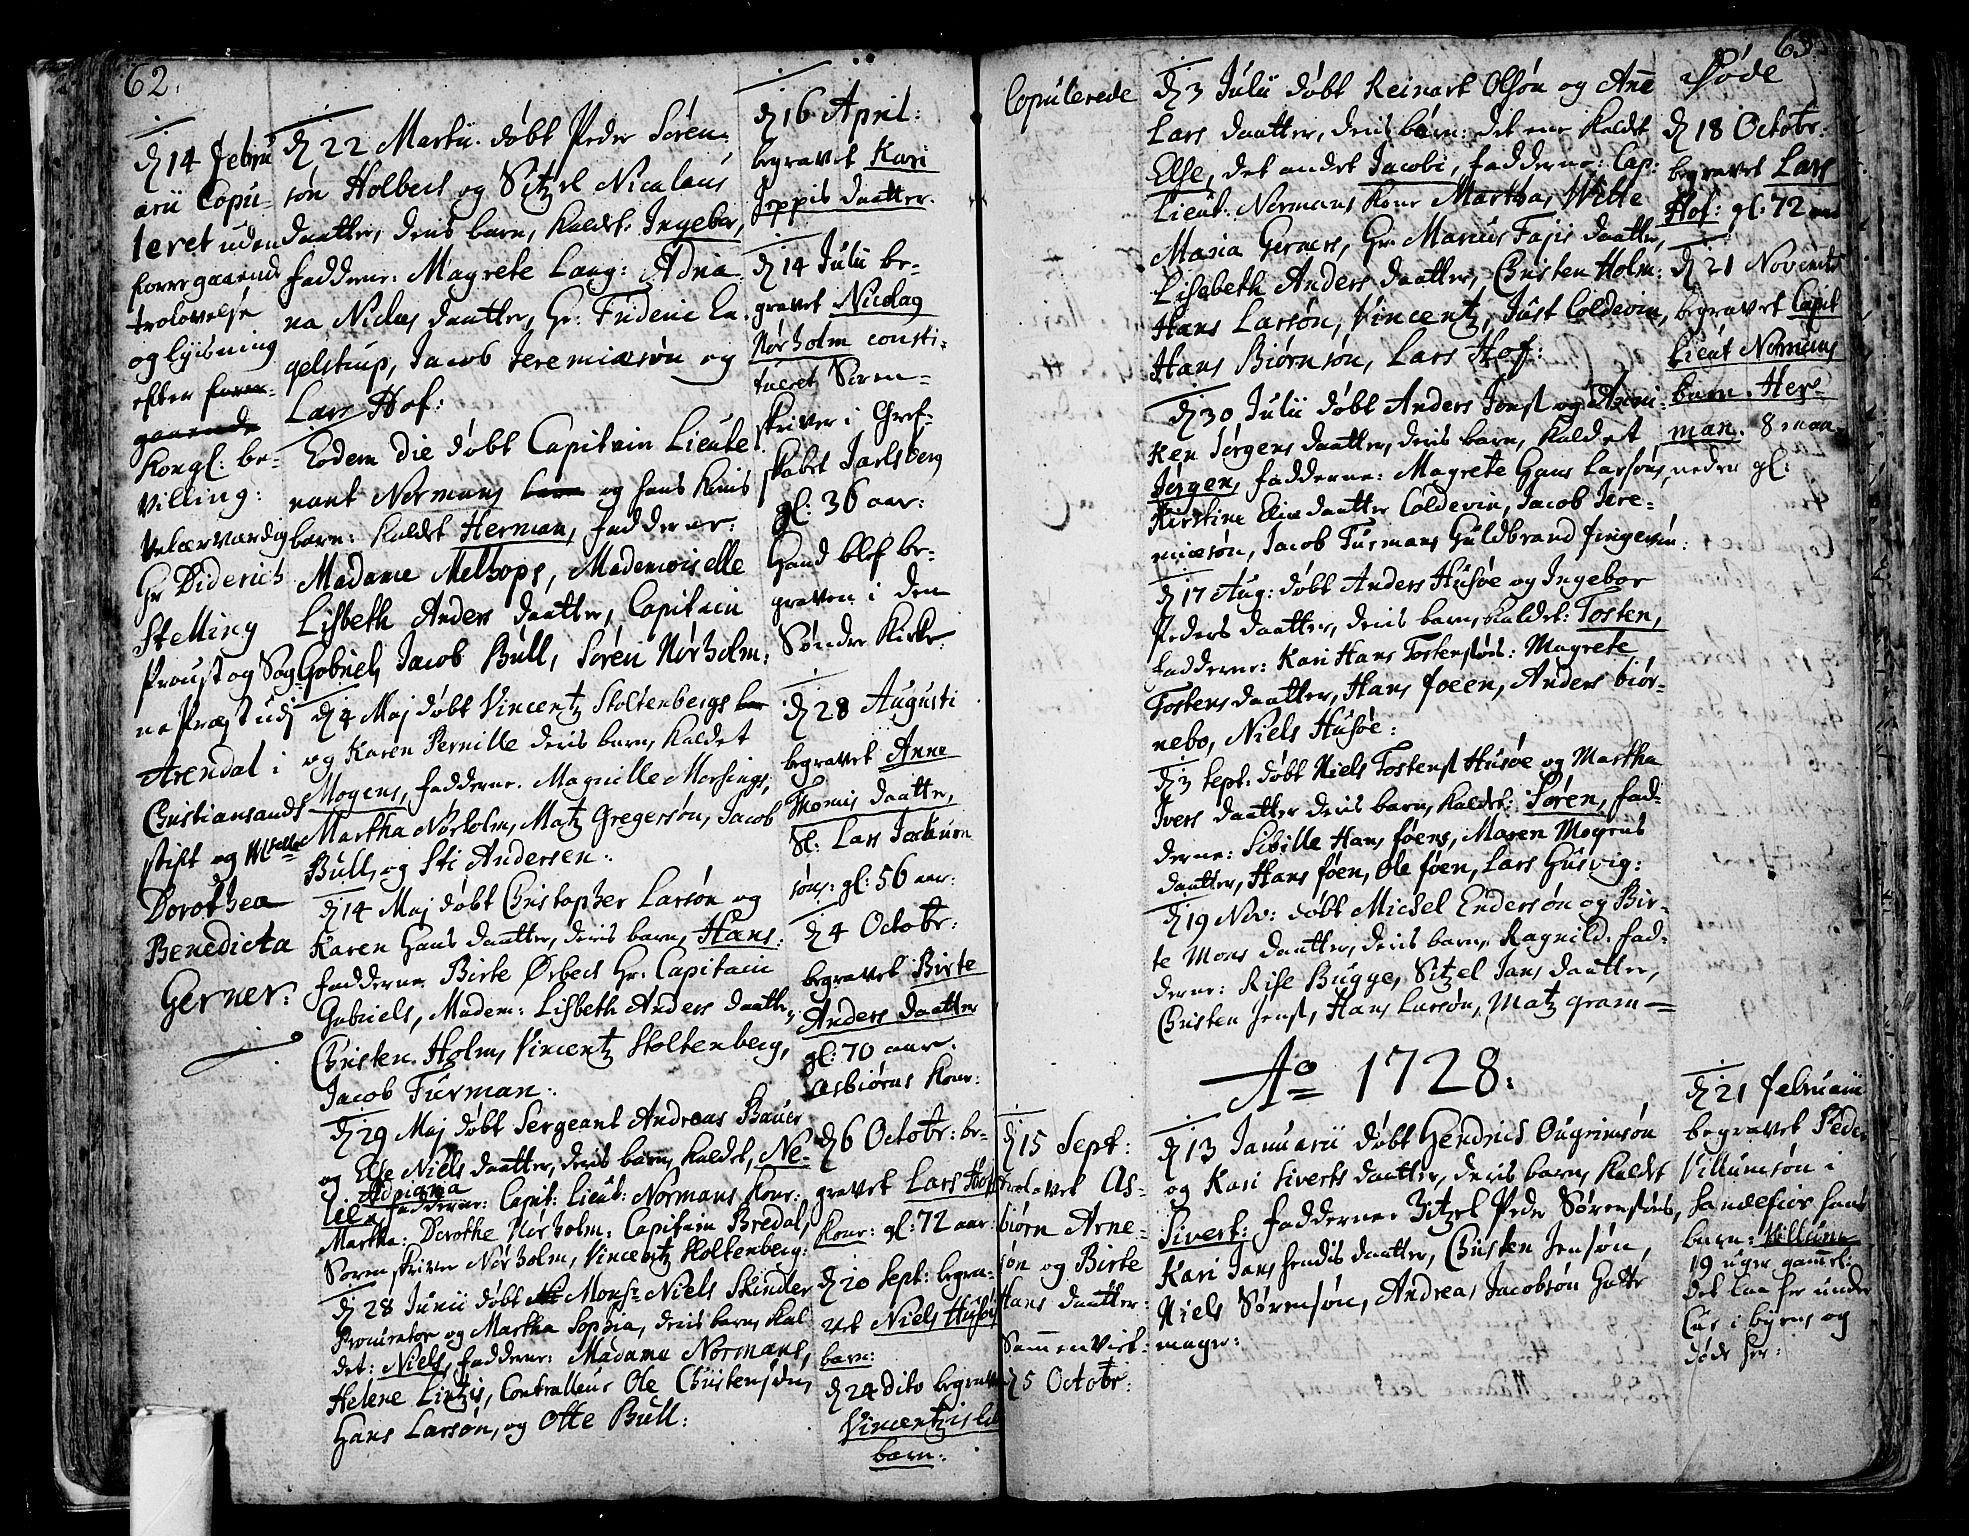 62.
d 14 Febru
arii Copu-
leret uden
forregaaende
trolovelse
og lysning
efter forre-
gaaende
Kongl: be-
villing:
Velærværdig
Hr Diderich
Stelling
Proust og Sog-
ne Præst udj
Arendal i
Christiansands
stift og
Dorothea
Benedicta
Gerner:
d 22 Martii døbt Peder Søren-
søn Holbech og Sitzel Nicolaus
daatter, deris barn, kaldt: Ingebor,
fadderne: Magrete Lang: Adria
na Niclas daatter, Hr: Frideric En-
gelstrup, Jacob Jeremiæsøn og
Lars Hof:
Eodem die døbt Capitain Lieute
nant Normans barn og hans Kones
barn: kaldet Herman, fadderne:
Madame Melhops, Mademoiselle
Lisbeth Anders daatter, Capitain
Gabriel, Jacob Bull, Søren Nørholm:
d 4 Maj døbt Vincentz Stoltenbergs bar
og Karen Pernille deris barn, kaldet
Mogens, fadderne. Magnille Morsings,
Martha Nørholm, Matz Gregersøn, Jacob
Bull, og Sti Andersen:
d 14 Maj døbt Christopher Larsøn og
Karen Hans daatter, deris barn, Hans:
fadderne Birte Ørbech Hr: Capitain
Gabriels, Madem: Lisbeth Anders daatter,
Christen Holm, Vincentz Stoltenberg,
Jacob Turman:
d 29 Maj døbt Sergeant Andreas Bauer
og Else Niels daatter, deris barn, kaldet, Ne-
Adriana
lila, fadderne: Capit: Lieut: Normans Kone:
Martha: Dorothe Nørholm: Capitain Bredal,
Sorenskriver Nørholm, Vincentz Stoltenberg:
d 28 Junii døbt Monsr Niels Skinder
Procurator og Martha Sophia, deris barn, kal
det: Niels, fadderne: Madame Normans,
Helene Lintzis, Contralleur Ole Christensøn,
Hans Larsøn, og Otte Bull:
d 16 April:
begravet Kari
Jeppis daatter.
d 14 Julii be-
gravet Nicolay
Nørholm consti-
tueret Soren-
skriver i Gref-
skabet Jarlsberg
gl: 36 aar:
Hand blef be-
graven i den
Søndre Kirke.
d 28 Augusti
begravet Anne
Thomis daatter,
Sl: Lars Jochum
søns: gl: 56 aar:
d 4 Octobr:
begravet Birte
Anders daatter
gl: 70 aar.
Asbiørns Kone:
d 6 Octobr: be-
gravet Lars Hofs
Kone: gl: 72 aar:
d 20 Sept: begra-
vet Niels Husøes
barn:
d 24 dito begravet
Vincentzis lid
barn:
63.
Copulerede
d 15 Sept:
trolovet As-
biørn Arne-
søn og Birte
Hans daatter:
Sammenviet:
d 5 Octobr:
d 3 Julii døbt Reinart Olsøn og Ane
Lars daatter, deris børn: det ene kaldt
Else, det andet Jacobi, fadderne: Cap:
Lieut: Normans Kone Martha, Witte
Maria Gerners, Hr: Marcus Fajis daatter,
Lisabeth Anders daatter, Christen Holm:
Hans Larsøn, Vincentz, Just Coldevin,
Hans Biørnsøn, Lars Hof:
d 30 Julii døbt Anders Jenss: og Anni-
ken Jørgens daatter, deris barn, kaldet
Jørgen, fadderne: Magrete Hans Larsøns,
Kirstine Eliæ daatter Coldevin, Jacob Jere-
miæsøn, Jacob Turmans Guldbrand
d 17 Aug: døbt Anders Husøe og Ingebor
Peders daatter, deris barn, kaldet: Tosten,
fadderne: Kari Hans Tostensøns: Magrete
Tostens daatter, Hans foeen, Anders biør-
nebo, Niels Husøe:
d 3 Sept: døbt Niels Tostenss Husøe og Martha
Ivers daatter deris barn, kaldet: Søren, fad-
derne: Sibille Hans foens, Maren Mogens
daatter, Hans føen, Ole føen, Lars Husvig:
d 19 Nov: døbt Michel Endersøn og Bir-
te Mons daatter, deris barn, Ragnild: fad-
derne: Rise Bugge, Sitzel Jans daatter,
Christen Jenss, Hans Larsøn, Matz gram
Ao 1728.
d 13 Januarii døbt Hendrich Ougrimsøn
og Kari Siverts daatter, deris barn, kaldt
Sivert: fadderne Zitzel Peder Sørensøns,
Kari Jans daatter, Christen Jensøn,
Niels Sørensøn, Andreas Jacobsøn Hatte
mager:
Døde
d 18 Octobr:
begravet Lars
Hof: gl: 72 aar
d 21 Novembr
begravet Capit
Lieut Normans
barn. Her-
man. 8 maa-
neder gl:
d 21 Februarii
begravet Peder
Villumsøn i
Sandefior hans
barn: Willum
19 uger gammel:
Det laa her under
Cur i byens og
døde her: